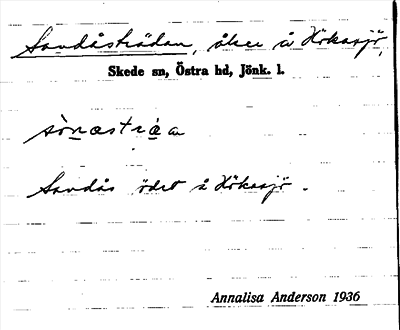 Sandåsträdan, åker å Hökasjö,
Skede sn, Östra hd, Jönk. l.
Sandås ödet å Hökasjö.
Annalisa Anderson 1936